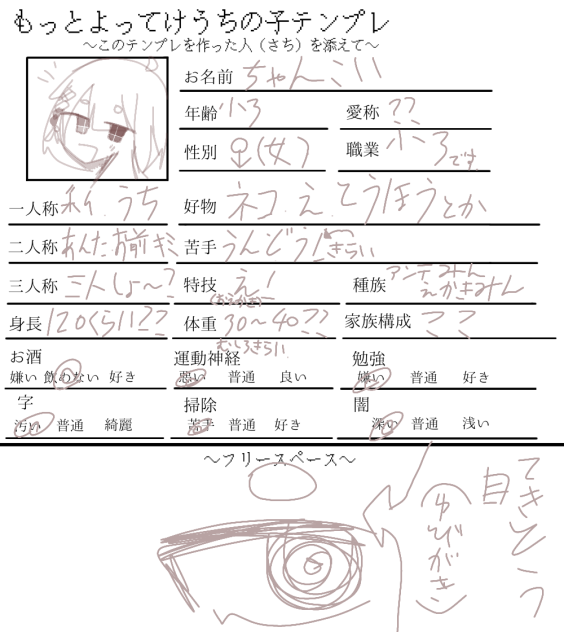 もっとよってけうちの子テンプレ
～このテンプレを作った人（さち）を添えて～
お名前 ちゃんこい
年齢 小3
愛称 ??
性別 ♀(女)
職業 小3です
一人称 私 うち
好物 ネコ え とうほうとか
二人称 あんた お前 キミ
苦手 うんどう! きらい
三人称 三人しょ～?
特技 え! (おえかき)
種族 アンチみん えかきみん
身長 120くらい??
体重 30～40?? むしろきらい
家族構成 ??
お酒
嫌い 飲めない 好き
運動神経
悪い 普通 良い
勉強
嫌い 普通 好き
字
汚い 普通 綺麗
掃除
苦手 普通 好き
闇
深い 普通 浅い
～フリースペース～
てきとう
目
(ゆびがき)